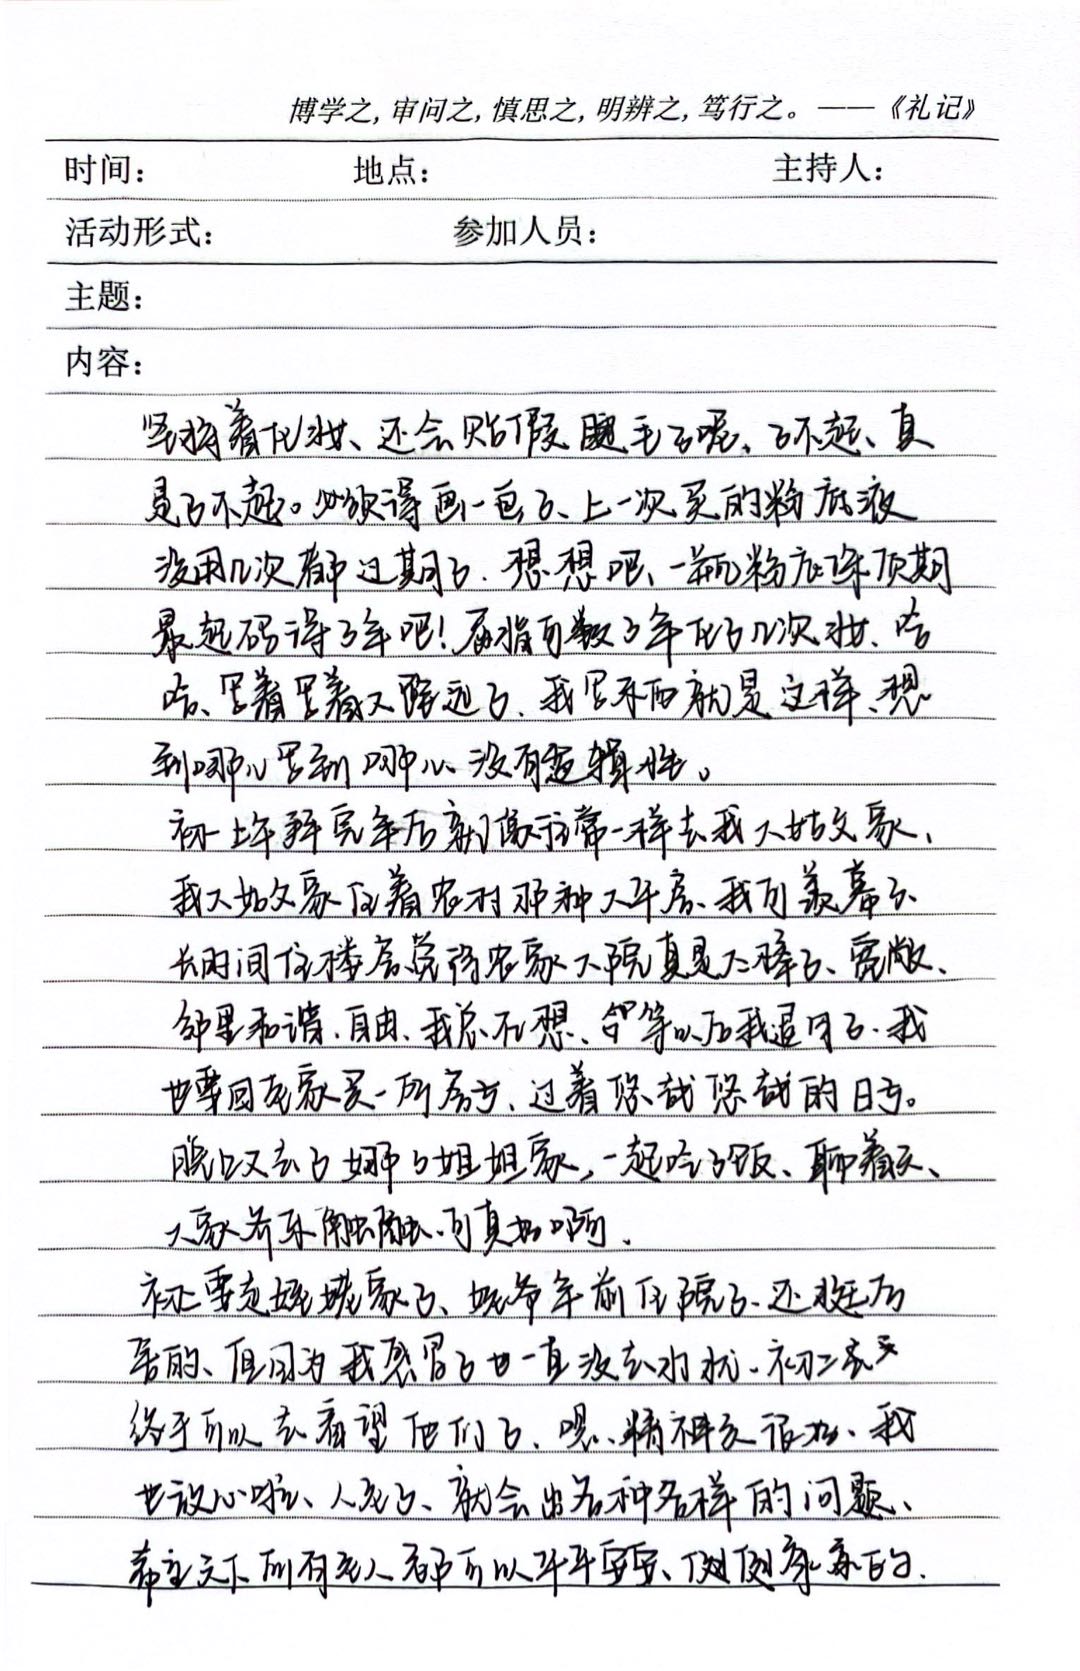 博学之，审问之，慎思之，明辨之，笃行之。——《礼记》
时间： 地点： 主持人：
活动形式： 参加人员：
主题：
内容：
坚持着化妆、还会贴假睫毛了呢、了不起、真
是了不起。必须得画一包了、上一次买的粉底液
没用几次都过期了．想想吧、一瓶粉底保质期
最起码得3年吧！屈指可数3年化了几次妆、哈
哈、写着写着又跑远了．我写东西就是这样、想
到哪儿写到哪儿没有逻辑性。
初一上午拜完年后就像往常一样去我大姑父家．
我大姑父家住着农村那种大平房、我可羡慕了、
长时间住楼房觉得农家大院真是太棒了、宽敞、
邻里和谐、自由、我总在想、等以后我退休了．我
也要回老家买一所房子、过着悠哉悠哉的日子。
晚上又去了娜娜姐姐家，一起吃了饭、聊着天、
大家齐乐融融、可真好啊．
初二要走姥姥家了、姥爷年前住院了．还挺厉
害的、但因为我感冒了也一直没去打扰．初二这天
终于可以去看望他们了、嗯、精神头很好、我
也放心啦、人老了、就会出各种各样的问题、
希望天下所有老人都可以平平安安、健健康康的．